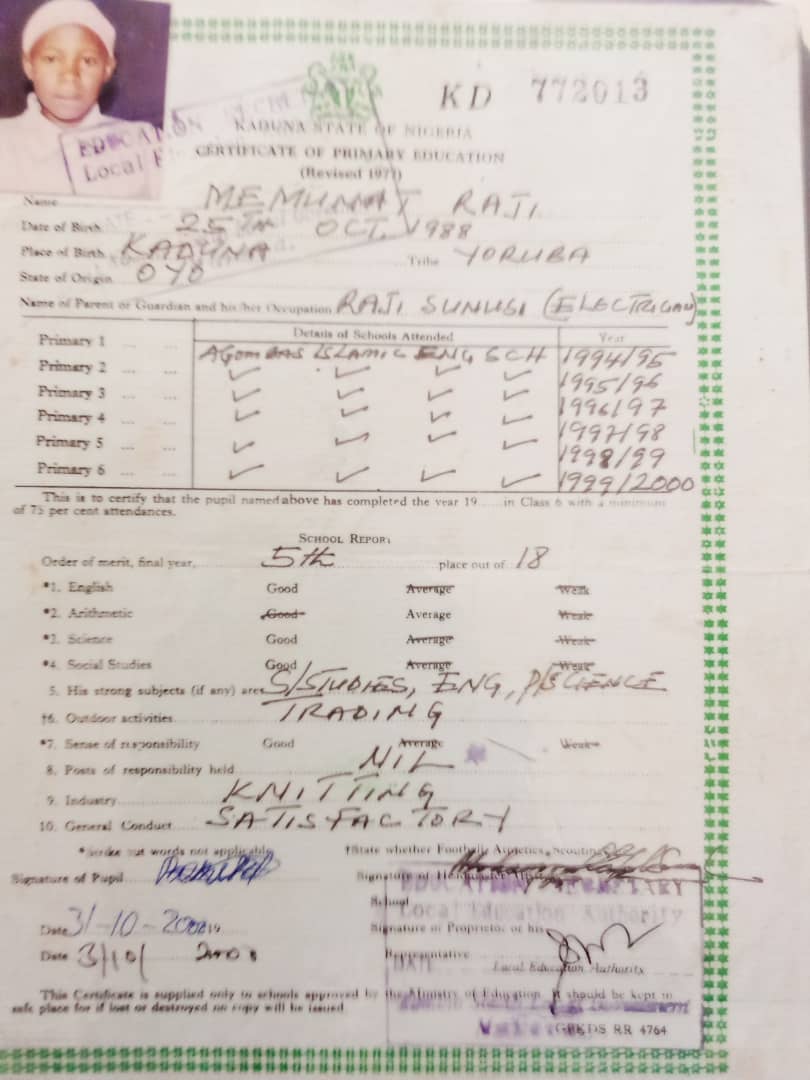 KD 772013
KADUNA STATE OF NIGERIA
CERTIFICATE OF PRIMARY EDUCATION
(Revised 1977)
EDUCATION
Local
Name MEMUNAT RAJI
Date of Birth 25TH OCT. 1988
Place of Birth KADUNA Tribe YORUBA
State of Origin OYO
Name of Parent or Guardian and his/her Occupation RAJI SUNUSI (ELECTRICIAN)
Details of Schools Attended Year
Primary 1 ... ... AGOMBAS ISLAMIC ENG SCH 1994/95
Primary 2 ... ... ✓ ✓ ✓ ✓ 1995/96
Primary 3 ... ... ✓ ✓ ✓ ✓ 1996/97
Primary 4 ... ... ✓ ✓ ✓ ✓ 1997/98
Primary 5 ... ... ✓ ✓ ✓ ✓ 1998/99
Primary 6 ... ... ✓ ✓ ✓ ✓ 1999/2000
This is to certify that the pupil named above has completed the year 19...... in Class 6 with a minimum
of 75 per cent attendances.
SCHOOL REPORT
Order of merit, final year, 5th place out of 18
*1. English Good Average Weak
*2. Arithmetic Good Average Weak
*3. Science Good Average Weak
*4. Social Studies Good Average Weak
5. His strong subjects (if any) are S/STUDIES, ENG, P/SCIENCE
†6. Outdoor activities TRADING
*7. Sense of responsibility Good Average Weak
8. Posts of responsibility held NIL
9. Industry KNITTING
10. General Conduct SATISFACTORY
*Strike out words not applicable †State whether Football, Athletics, Scouting
Signature of Pupil Signature of Headmaster
EDUCATION SECRETARY
School
Local Education Authority
Date 31-10-2000 19 Signature of Proprietor or his
Date 31/10/ 2000 Representative
DATE
Local Education Authority
This Certificate is supplied only to schools approved by the Ministry of Education. It should be kept in
safe place for if lost or destroyed no copy will be issued
GEEDS RR 4764